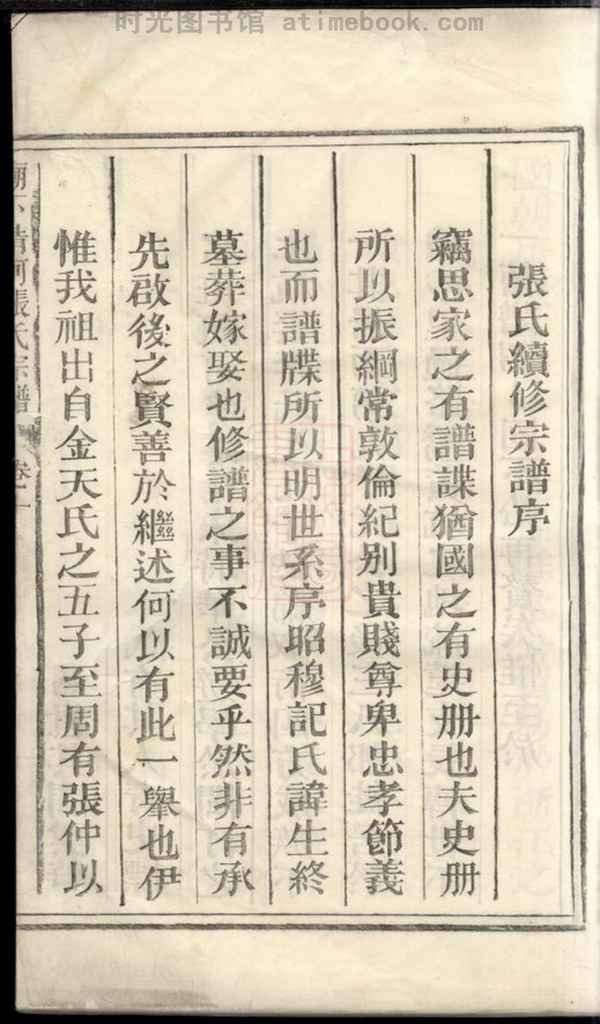 时光图书馆 atimebook.com
張氏續修宗譜序
竊思家之有譜諜猶國之有史册也夫史册
所以振綱常敦倫紀别貴賤尊卑忠孝節義
也而譜牒所以明世系序昭穆記氏諱生終
墓葬嫁娶也修譜之事不誠要乎然非有承
先啟後之賢善於繼述何以有此一舉也伊
惟我祖出自金天氏之五子至周有張仲以
清河張氏宗譜 卷